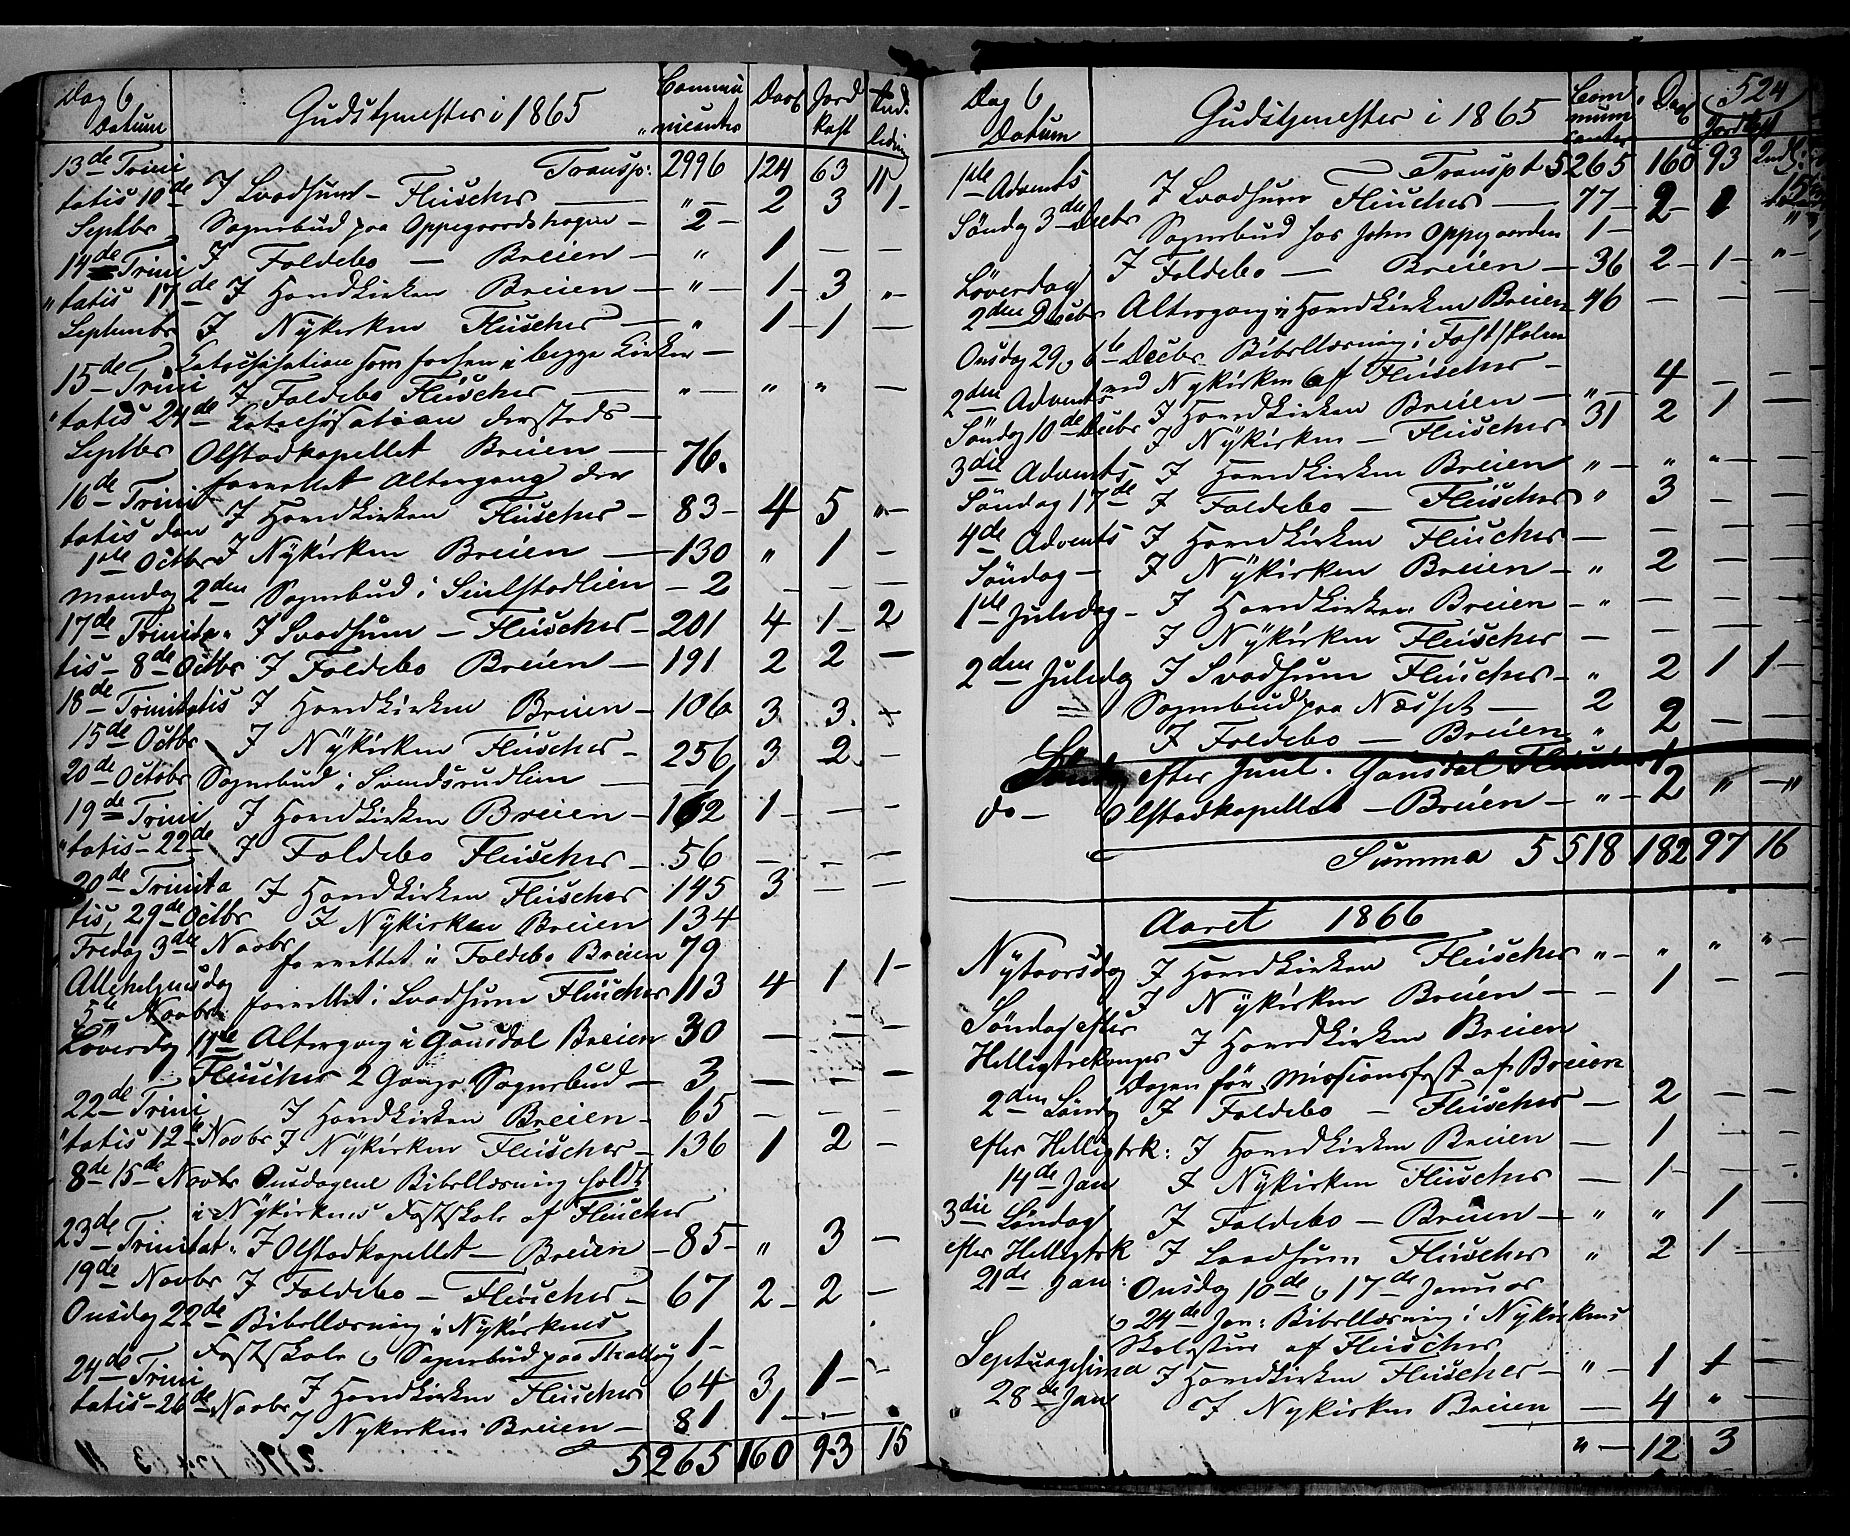 Dag &
Datum
Gudstjenester i 1865
Commu
nicanter
Daab
Jord
kast
Ind.
ledning
13de Trini Transp: 2996 124 63 11
tatis 10de I Svadsum – Fleischer — " – 2 3 1 –
Septbr Sognebud paa Oppegaardshagen – 2 –
14de Trini I Foldebo — Breien – " 1 – –
tatis 17de I Hovedkirken Breien – " – 1 – 3 " –
Septembr I Nykirken Fleischer – " 1 – 1 –
Katechisation som forhen i begge Kirker –
15de Trini I Foldebo Fleischer — " – " " –
tatis 24de Katechisation dersteds –
Septbr Olstadkapellet Breien — 76.
forrettet Altergang der
16de Trini
tatis den I Hovedkirken Fleischer – 83 – 4 5 " –
1ste Octbr I Nykirken Breien — 130 " 1 –
Mandag 2den Sognebud i Seielstadlien – 2 – – –
17de Trinita I Svadsum – Fleischer – 201 4 1 – 2
tis – 8de Octbr I Foldebo Breien — 191 2 2 –
18de Trinitatis I Hovedkirken Breien – 106 3 3. –
15de Octbr I Nykirken Fleischer – 256 3 2 –
20de Octobr Sognebud i Svendsrudlien — 1
19de Trini I Hovedkirken Breien – 162 1 – – –
tatis – 22de I Foldebo Fleischer – 56 – – –
20de Trinita I Hovedkirken Fleischer 145 3 – –
tis, 29de Octbr I Nykirken Breien 134
Fredag 3die Novbr forrettet i Foldebo Breien 79
Allehelgensdag
5te Novbr forrettet i Svadsum Fleischer 113 4 1 1 –
Løverdag 11te Altergang i Gausdal Breien 30 – – –
Fleischer 2 Gange Sognebud – 3 – – –
22de Trini I Hovedkirken Breien – 65 – – –
tatis 12te Novbr I Nykirken Fleischer – 136 1 2 –
8de 15de Novbr Onsdagene Bibellæsning holdt
i Nykirkens Fastskole af Fleischer
23de Trinitat: I Olstadkapellet – Breien – 85 – " 3 –
19de Novbr I Foldebo – Fleischer – 67 2 – 2 –
Onsdag 22de Bibellæsning i Nykirkens
Fastskole & Sognebud paa 1 –
24de Trini
tatis – 26de Novbr I Hovedkirken Fleischer 64 3 1 –
I Nykirken Breien – 81 1 – –
5265 160 93 15
524
Dag &
Datum
Gudstjenester i 1865
Com
muni
canter
Daab
Jordkast
Indl:
1ste Advents Transpt 5265 160 93 15
Søndag 3die Decbr I Svadsum Fleischer – 77 – 2 –
Sognebud hos John Oppegaarden 1 –
Løverdag I Foldebo — Breien – 36 2 – 1 – " –
2den Decbr Altergang i Hovedkirken Breien 46 – – –
Onsdag 29 & 6te Decbr Bibellæsning i Fastskolen
ved Nykirken af Fleischer –
2den Advents I Hovedkirken Breien – " – 4 – –
Søndag 10de Decbr I Nykirken – Fleischer 31 2 1 –
3die Advents I Hovedkirken Breien " – " " – –
Søndag 17de I Foldebo – Fleischer " 3 – –
4de Advents I Hovedkirken Fleischer – – – –
Søndag – I Nykirken Breien – " 2 – –
1ste Juledag – I Hovedkirken Breien – " – – – –
I Nykirken Fleischer – – – –
2den Juledag I Svadsum Fleischer – " 2 1 1 –
Sognebud paa Næsset — 2
I Foldebo – Breien " 2 – –
Sønd efter Juul. Gausdal Fleischer
do – Olstadkapellet – Breien – " – 2 " – "
Summa 5518 182 97 16
Aaret 1866
Nytaarsdag I Hovedkirken Fleischer " – " " " –
I Nykirken Breien – – 1 – –
Søndag efter
Helligtrekonger I Hovedkirken Breien
Dagen før Missionsfest af Breien
2den Sønd I Foldebo – Fleischer – 2 – –
efter Helligtrk: I Hovedkirken Breien – 1 – –
14de Jan I Nykirken Fleischer – 1 – –
3die Søndag I Foldebo – Breien – " " 1
efter Helligtrk I Svadsum Fleischer " 2 1 –
21de Jan: Onsdag 10de & 17de Januar
& 24de Jan: Bibellæsning i Nykirkens
Skolestue af Fleischer
Septuagesima I Hovedkirken Fleischer – " – 1 1 –
28de Jan I Nykirken Breien – 4 "
" – 12 3